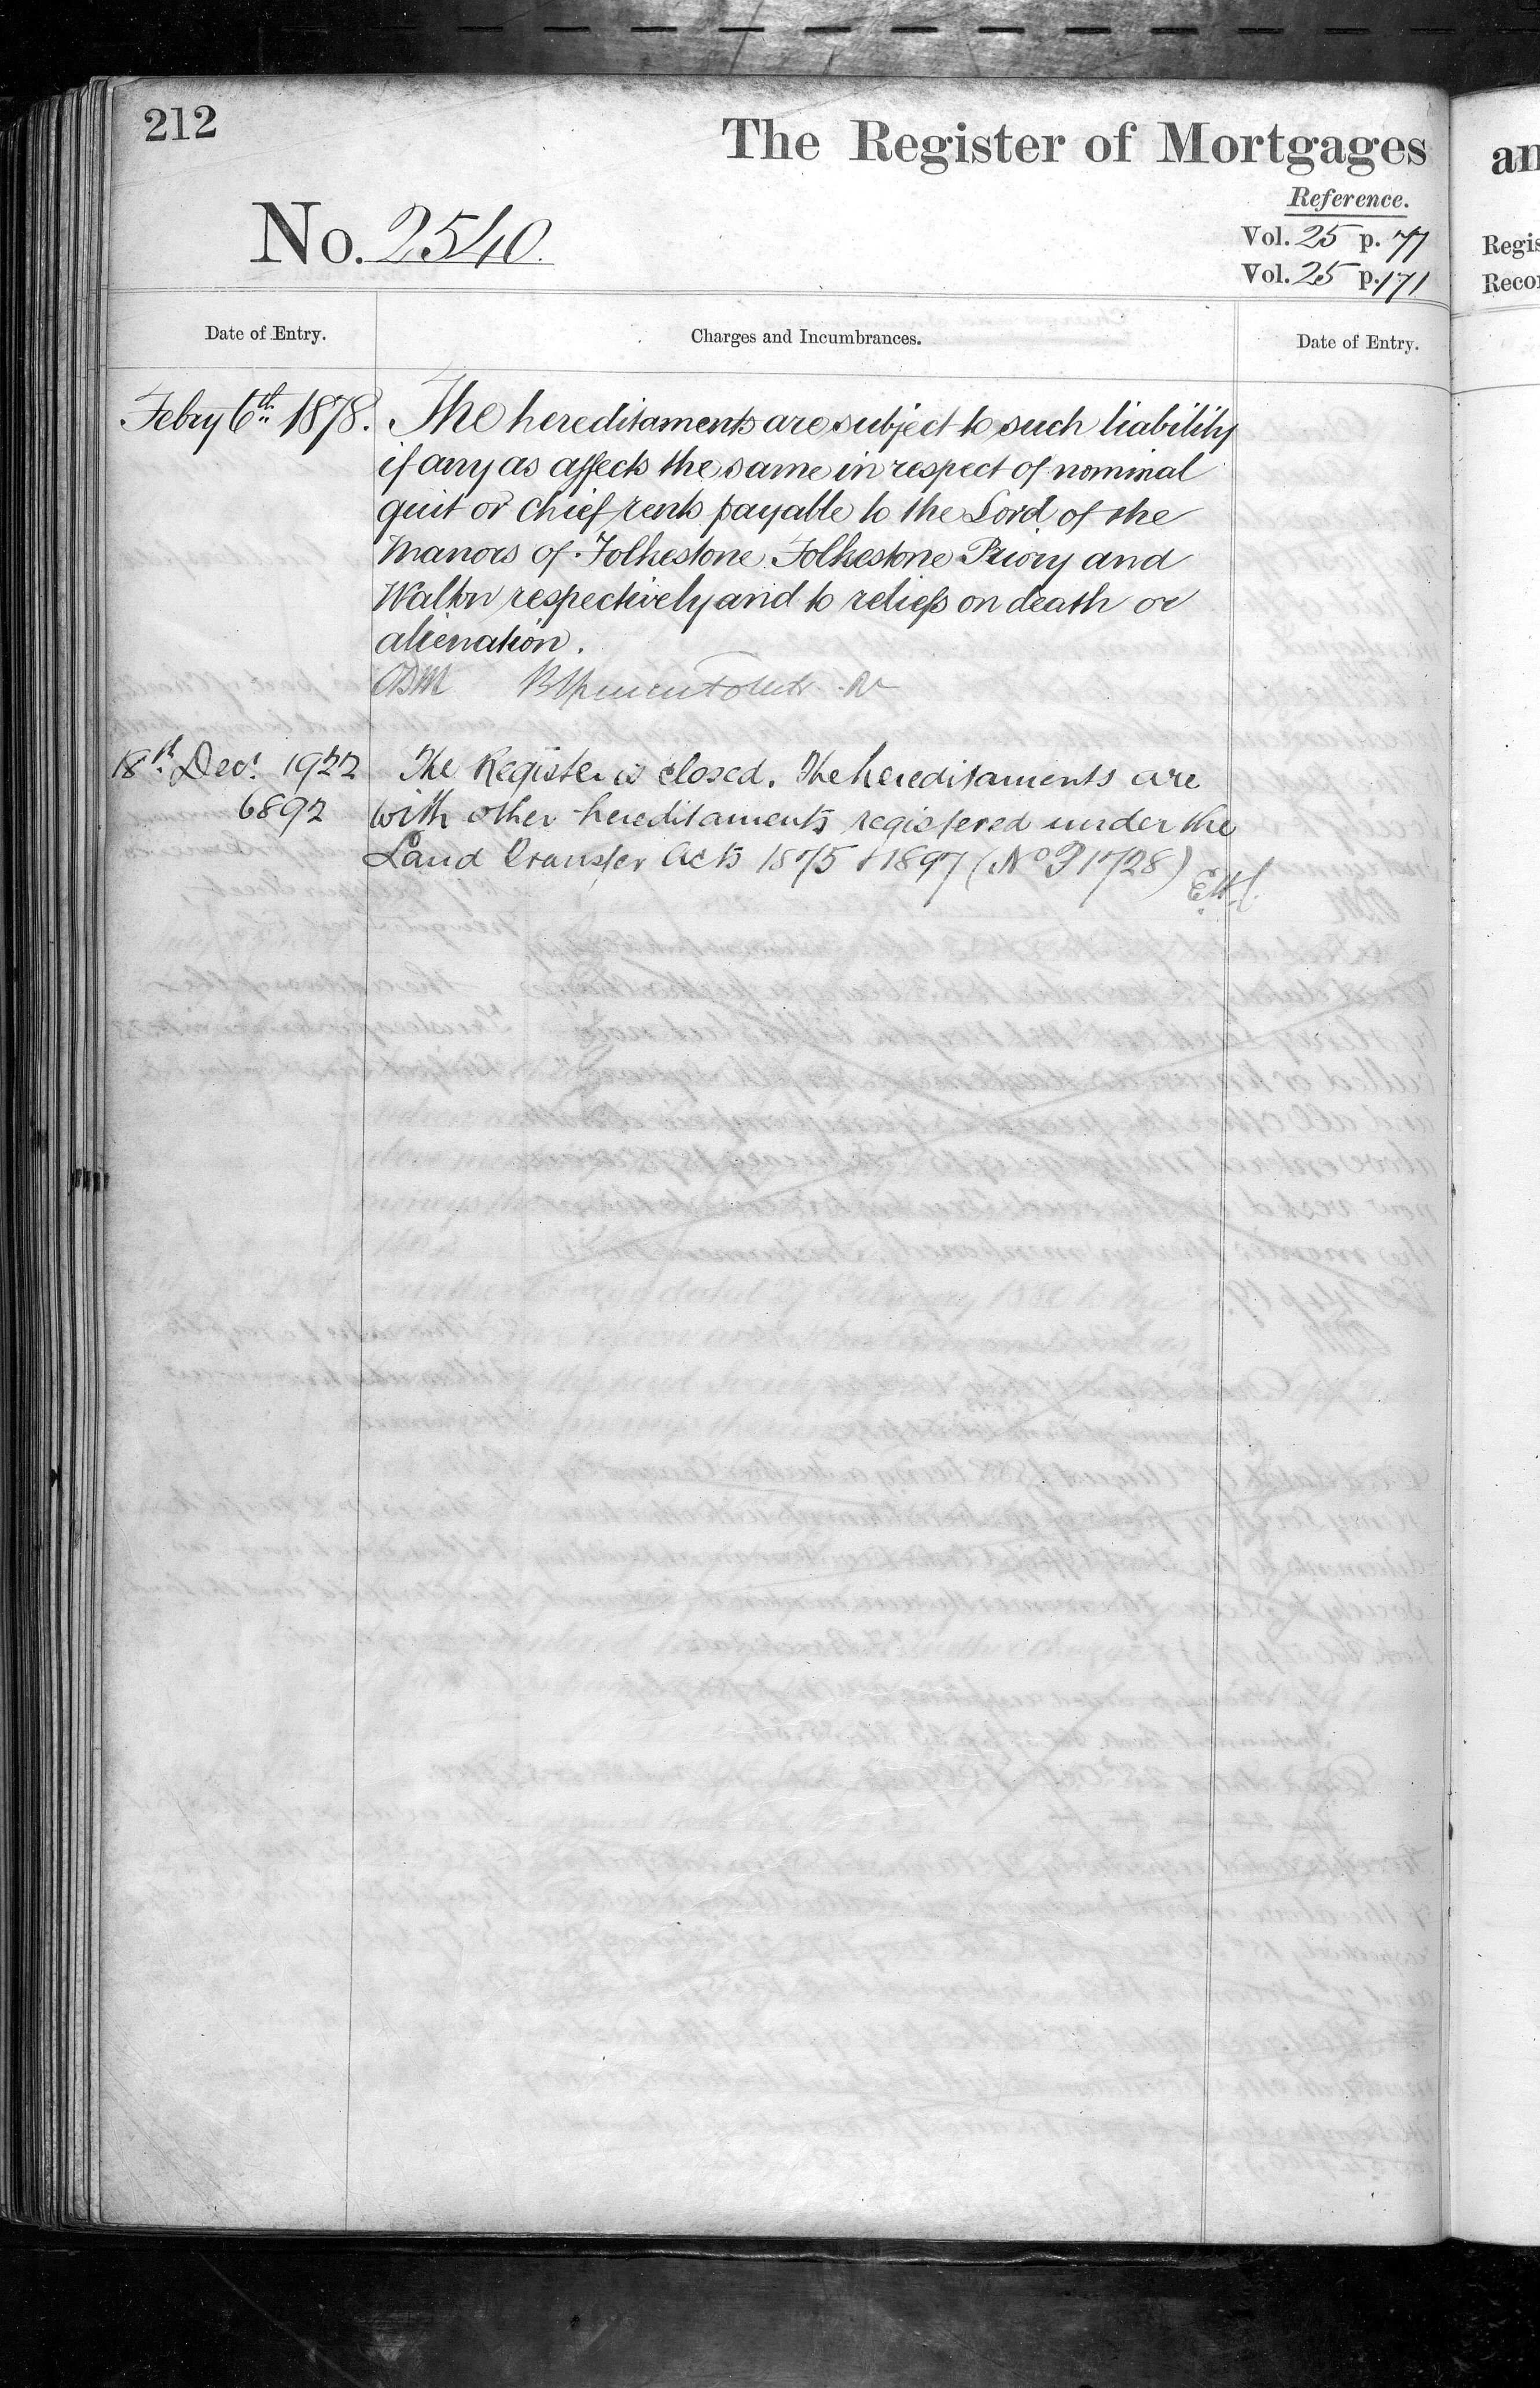 212
The Register of Mortgages
an
Reference.
No. 2540.
Vol. 25 p. 77
Regis
Vol. 25 p. 171
Recor
Date of Entry.
Charges and Incumbrances.
Date of Entry.
Febry 6th 1878. The hereditaments are subject to such liability
if any as affects the same in respect of nominal
quit or chief rents payable to the Lord of the
Manors of Folkestone Folkestone Priory and
Walton respectively and to reliefs on death or
alienation.
18th Decr 1922 The Register is closed. The hereditaments are
6892 with other hereditaments registered under the
Land Transfer Acts 1875 & 1897 (No P1728)